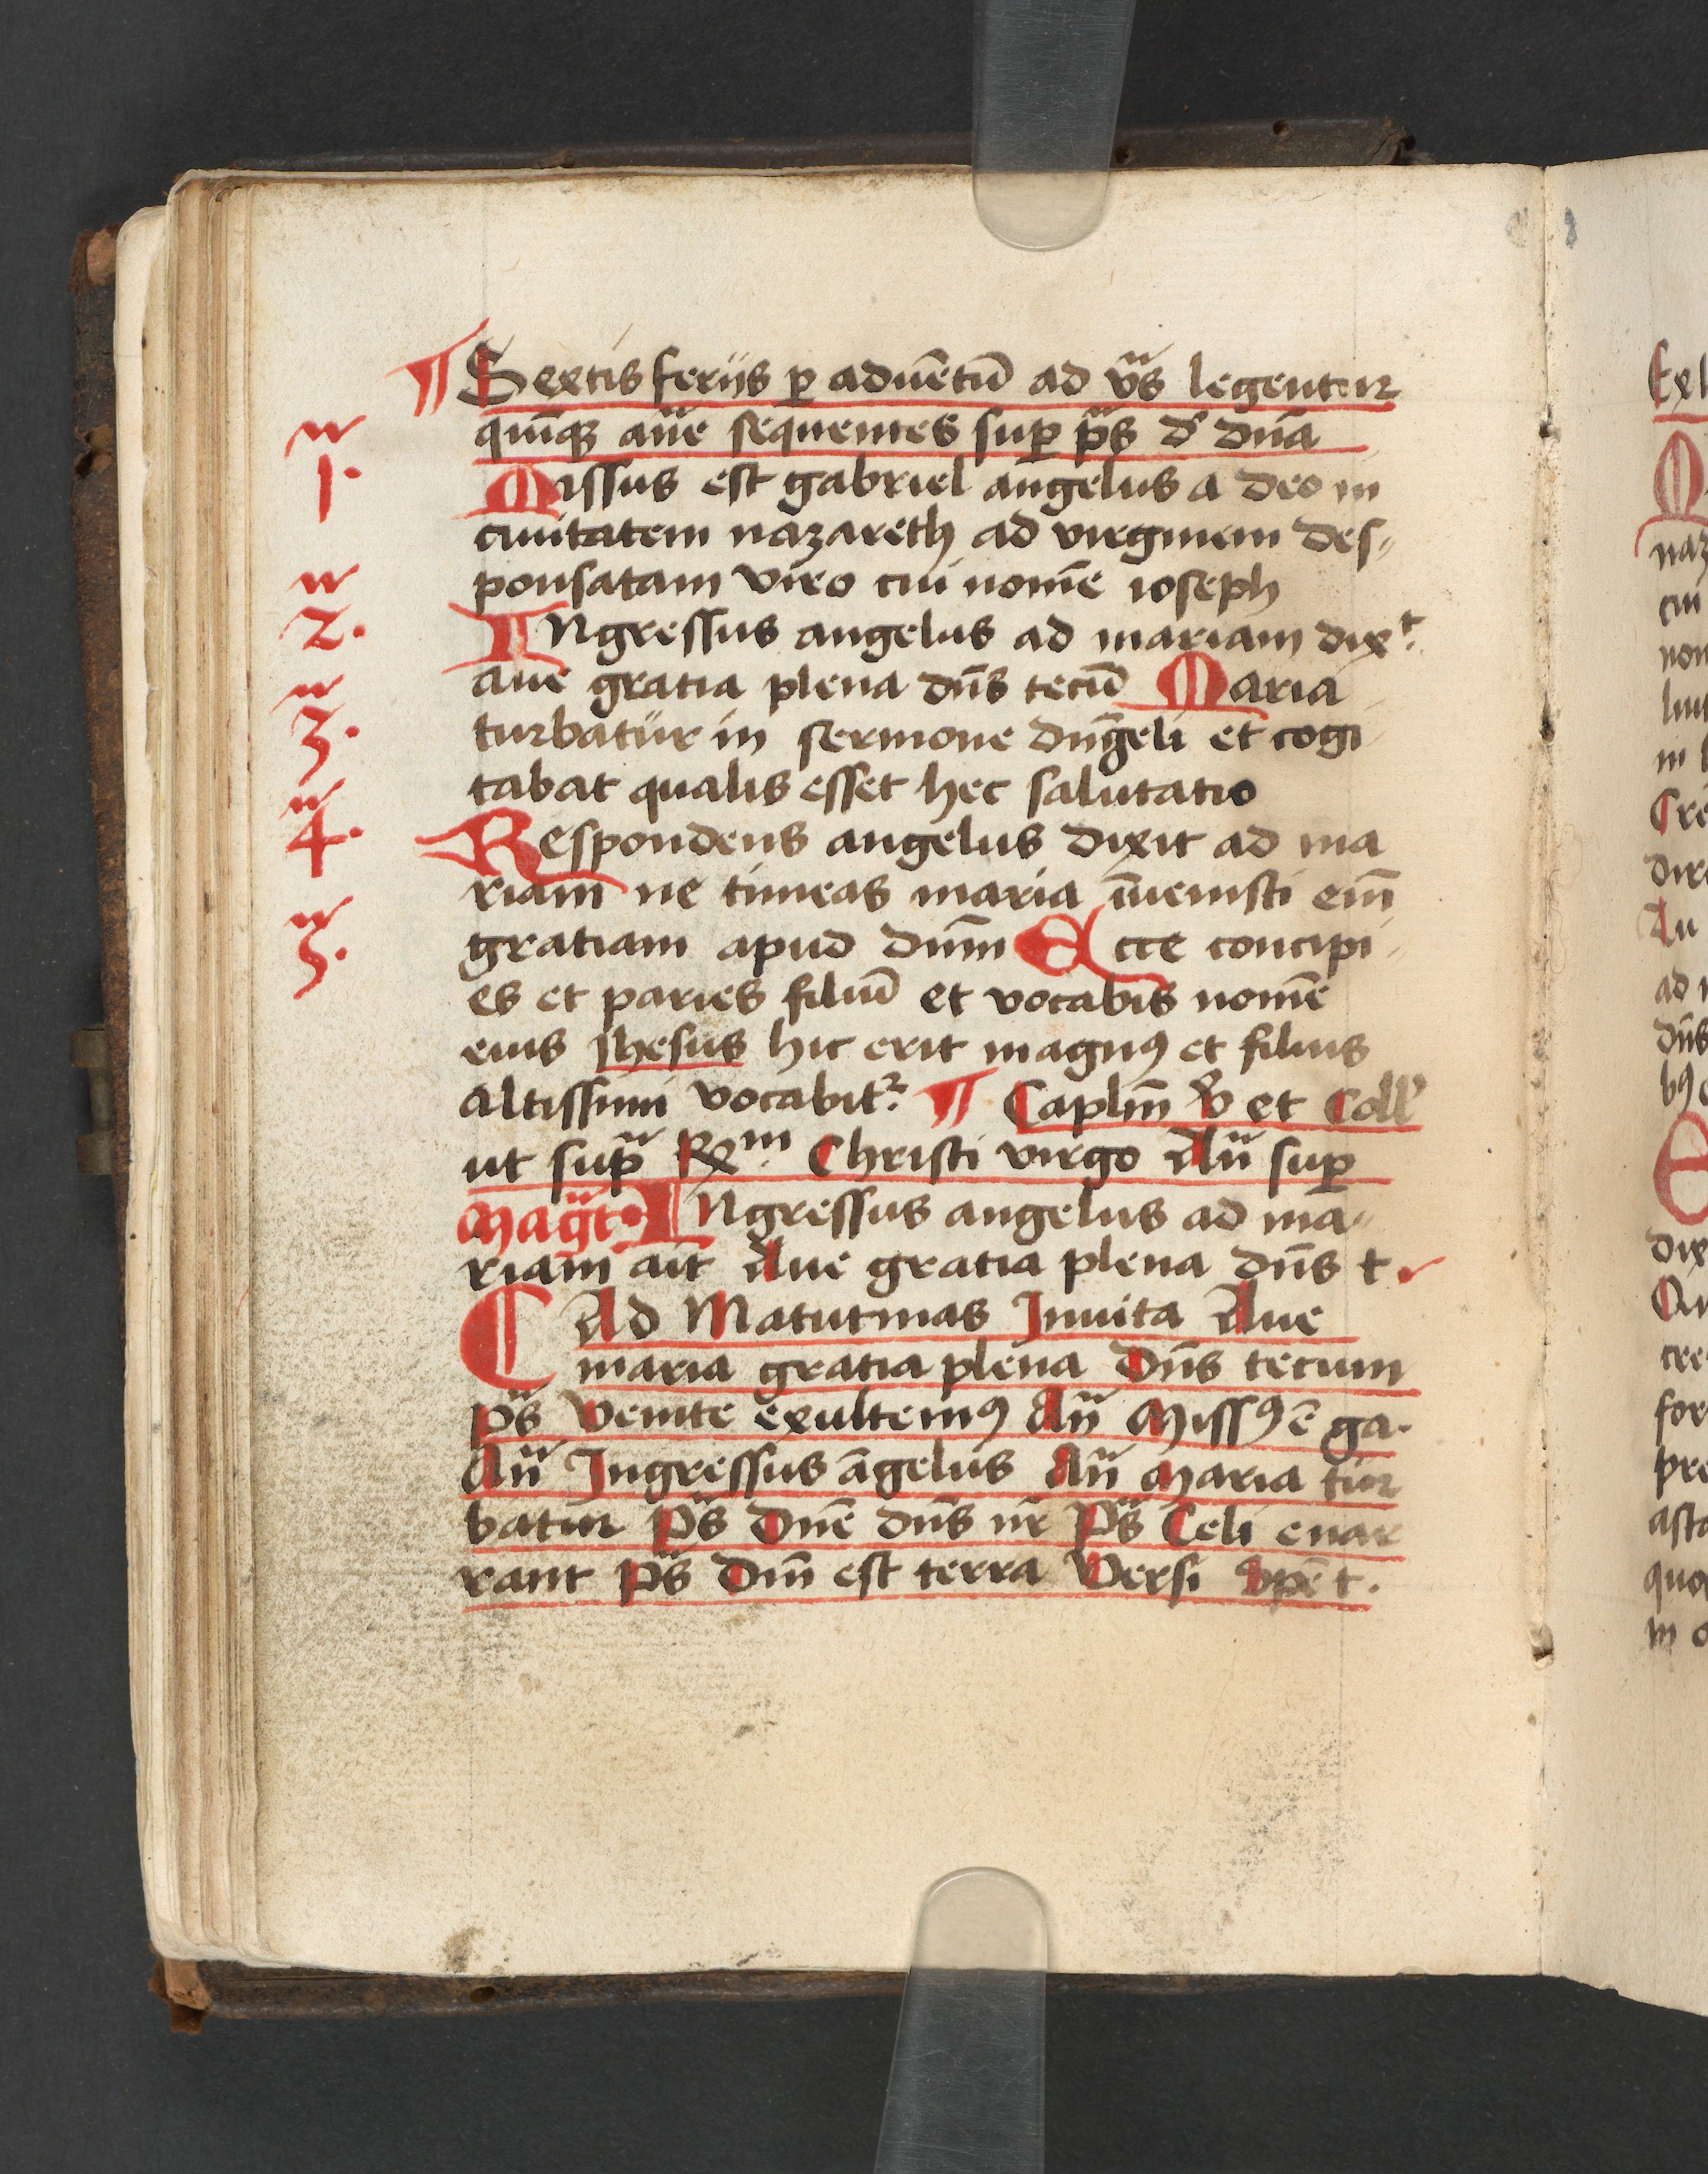 ¶ Sextis ferijs ꝑ aduētū ad vs̄ legentur
quīqꝫ an̄e sequentes suꝑ ps̄ d' dn̄a
1.
Missus est gabriel angelus a deo in
ciuitatem nazareth ad virginem des
ponsatam viro cui nomē ioseph
2.
INgressus angelus ad mariam dixᵗ.
aue gratia plena dn̄s tecū Maria
3.
turbatur in sermone angeli et cogi
tabat qualis esset hec salutatio
4.
Respondens angelus dixit ad ma
riam ne timeas maria īuenisti em̄
5.
gratiam apud dnm̄ Ecce concipi
es et paries filiū et vocabis nomē
eius Jhesus hic erit magnꝰ et filius
altissimi vocabit᷑ ¶ Caplm̄ v̓ et Coll'
ut sup̄ Rxᵐ. Christi virgo An̄ suꝑ
Magt̄. INgressus angelus ad ma
riam ait Aue gratia plena dn̄s t.
C Ad Matutinas Inuita Aue
maria gratia plena Dn̄s tecum
ps̄ Venite exultemꝰ An̄ Missꝰ ē ga.
An̄ Ingressus āgelus An̄ Maria tur
batur Ps̄ Dn̄e dn̄s nr̄ Ps̄ Celi enar
rant Ps̄ Dn̄i est terra Versi